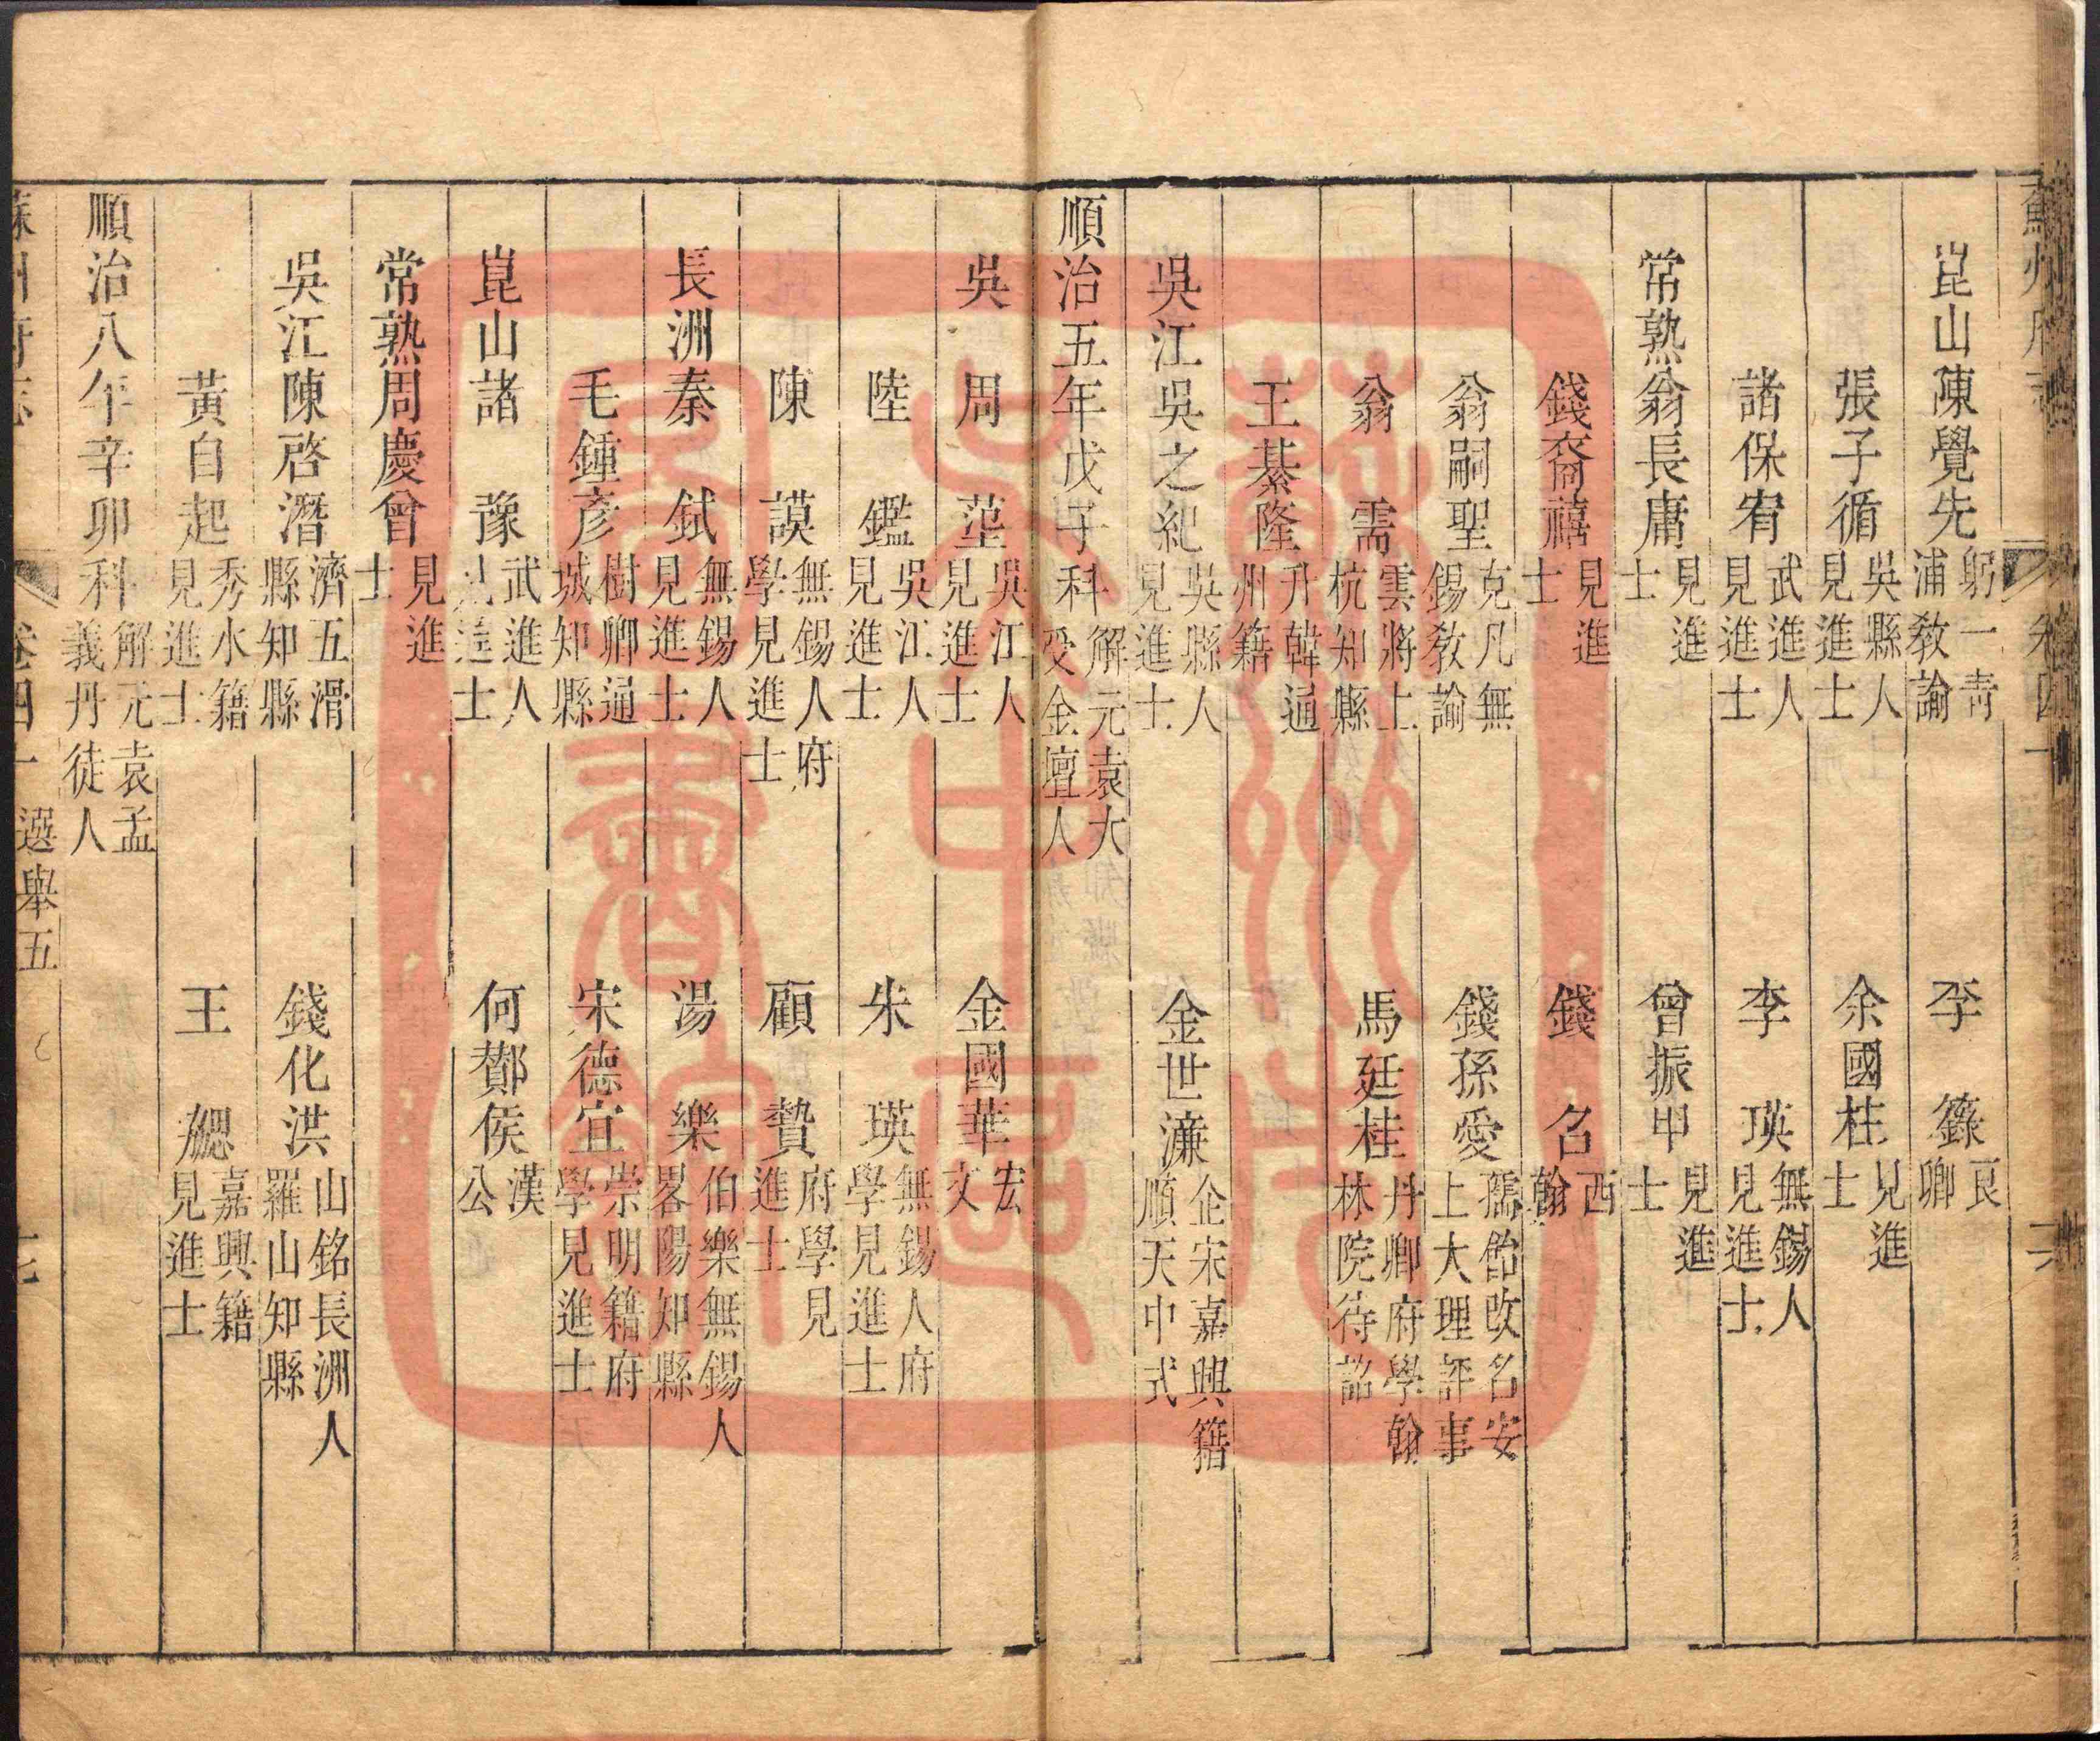 崑山陳覺先躬一青浦敎諭 李籙良卿
張子循吳縣人見進士 余國桂見進士
諸保宥武進人見進士 李瑛無錫人見進士
常熟翁長庸見進士 曾振甲見進士
錢裔禧見進士 錢名西翰
翁嗣聖克凡無錫敎諭 錢孫愛孺飴改名安上大理評事
翁需雲將上杭知縣 馬廷桂丹卿府學翰林院待詔
王綦隆升韓通州籍
吳江吳之紀吳縣人見進士 金世濂企宋嘉興籍順天中式
順治五年戊子科解元袁大受金壇人
吳周𦱤吳江人見進士 金國華宏文
陸鑑吳江人見進士 朱瑛無錫人府學見進士
陳謨無錫人府學見進士 顧贄府學見進士
長洲秦鉽無錫人見進士 湯樂伯樂無錫人畧陽知縣
毛鍾彥樹卿通城知縣 宋德宜崇明籍府學見進士
崑山諸豫武進人見進士 何酇侯漢公
常熟周慶曾見進士
吳江陳啓濳濟五滑縣知縣 錢化洪山銘長洲人羅山知縣
黃自起秀水籍見進士 王勰嘉興籍見進士
順治八年辛卯科解元袁孟義丹徒人
蘇州府志 卷四十 選舉五 十七